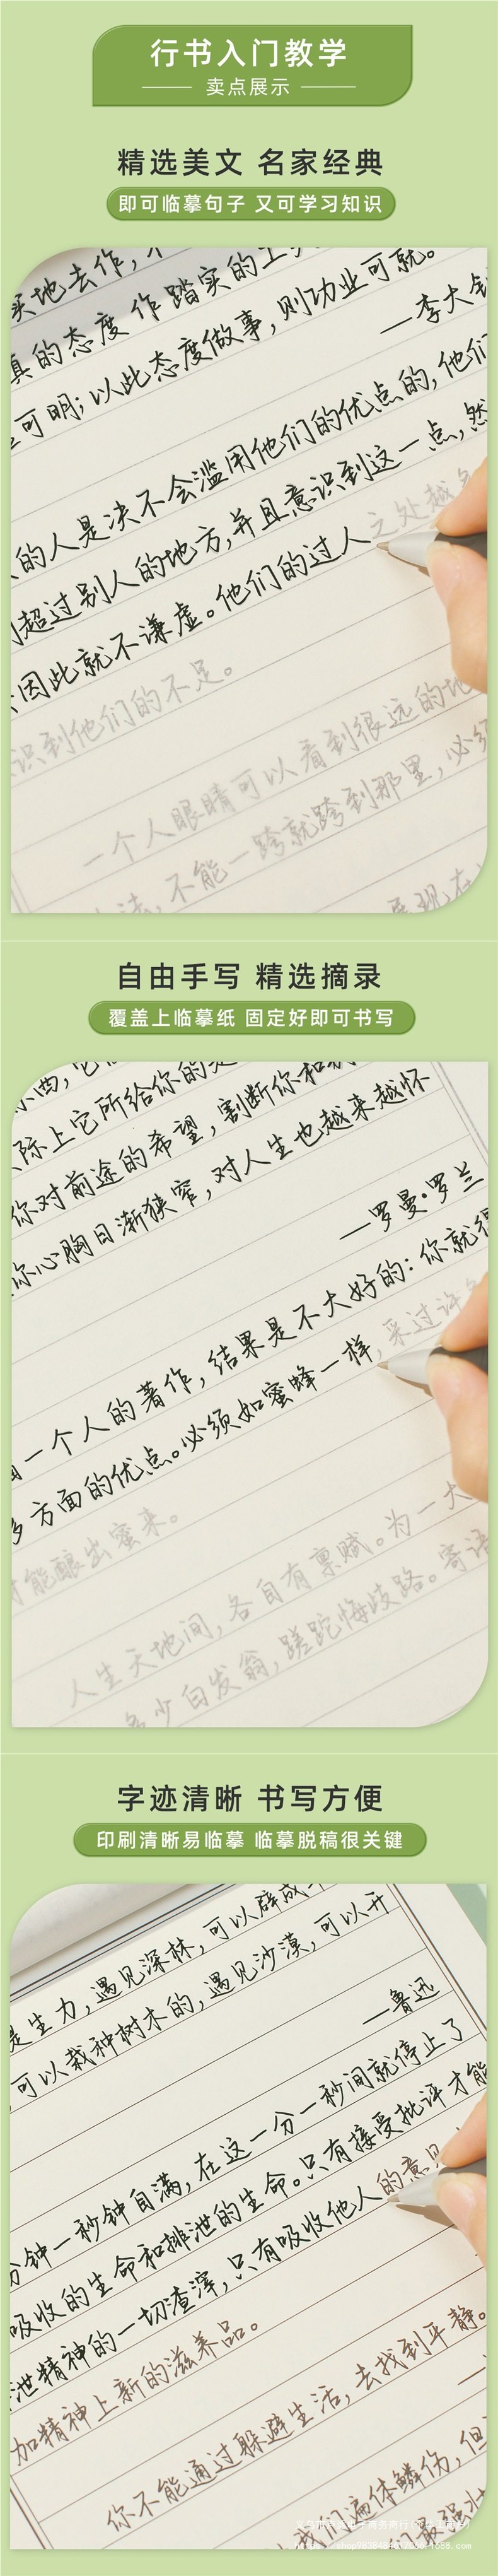 行书入门教学
卖点展示
精选美文 名家经典
即可临摹句子 又可学习知识
实地去作,
真的态度作踏实的工
可明;以此态度做事,则功业可就。
—李大钊
的人是决不会滥用他们的优点的,他们
超过别人的地方,并且意识到这一点,然
因此就不谦虚。他们的过人之处越
识到他们的不足。
一个人眼睛可以看到很远的地
法,不能一跨就跨到那里,必须
现在
自由手写 精选摘录
覆盖上临摹纸 固定好即可书写
东西,它
际上它所给你的是
你对前途的希望,割断你和
你心胸日渐狭窄,对人生也越来越怀
—罗曼·罗兰
用一个人的著作,结果是不大好的:你就得
多方面的优点。必须如蜜蜂一样,采过许
才能酿出蜜来。
人生天地间,各自有禀赋。为一大
多少白发翁,蹉跎悔歧路。寄语
字迹清晰 书写方便
印刷清晰易临摹 临摹脱稿很关键
是生力,遇见深林,可以辟成
可以栽种树木的,遇见沙漠,可以开
—鲁迅
分钟一秒钟自满,在这一分一秒间就停止了
吸收的生命和排泄的生命。只有接受批评才能
泄精神的一切渣滓,只有吸收他人的意见
加精神上新的滋养品。
你不能通过躲避生活,去找到平静。
我们遍体鳞伤,但
最强壮